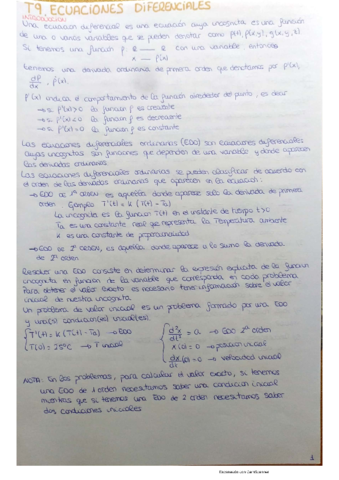 T9. ECUACIONES DIFERENCIALES
INTRODUCCIÓN
Una ecuación diferencial es una ecuación cuya incógnita es una función
de una o varias variables que se pueden denotar como p(t), p(x,y), y(x,y,z)
Si tenemos una función p R → R con una variable entonces
x → p(x)
tenemos una derivada ordinaria de primera orden que denotamos por p'(x).
dp/dx = p'(x)
p'(x) indica el comportamiento de la función alrededor de punto, es decir
→ si p'(x)>0 la función p es creciente
→ si p'(x)<0 la función p es decreciente
→ si p'(x)=0 la función p es constante
Las ecuaciones diferenciales ordinarias (EDO) son ecuaciones diferenciales
cuyas incógnitas son funciones que dependen de una variable y donde aparecen
las derivadas ordinarias
Las ecuaciones diferenciales ordinarias se pueden clasificar de acuerdo con
el orden de las derivadas ordinarias que aparecen en la ecuación:
→ EDO DE 1er ORDEN es aquella donde aparece solo la derivada de primer
orden Ejemplo T'(t) = k (T(t) - Ta)
La incógnita es la función T(t) en el instante de tiempo t>0
Ta es una constante real que representa la temperatura ambiente
k es una constante de proporcionalidad
→ EDO DE 2º ORDEN, es aquella donde aparece a lo sumo la derivada
de 2º orden
Resolver una EDO consiste en determinar la expresión explícita de la función
incógnita en función de la variable que corresponda en cada problema
Para determinar el valor exacto es necesario tener información sobre el valor
inicial de nuestra incógnita
Un problema de valor inicial es un problema formado por una EDO
y una(s) condición(es) inicial(es)
T'(t) = k (T(t) - Ta) → EDO
T(0) = 25ºC → T inicial
d²x/dt² = a → EDO 2º orden
x(0) = 0 → posición inicial
dx/dt(0) = 0 → velocidad inicial
NOTA: En los problemas, para calcular el valor exacto, si tenemos
una EDO de 1 orden necesitamos saber una condición inicial
mientras que si tenemos una EDO de 2 orden necesitamos saber
dos condiciones iniciales
1
Escaneado con CamScanner